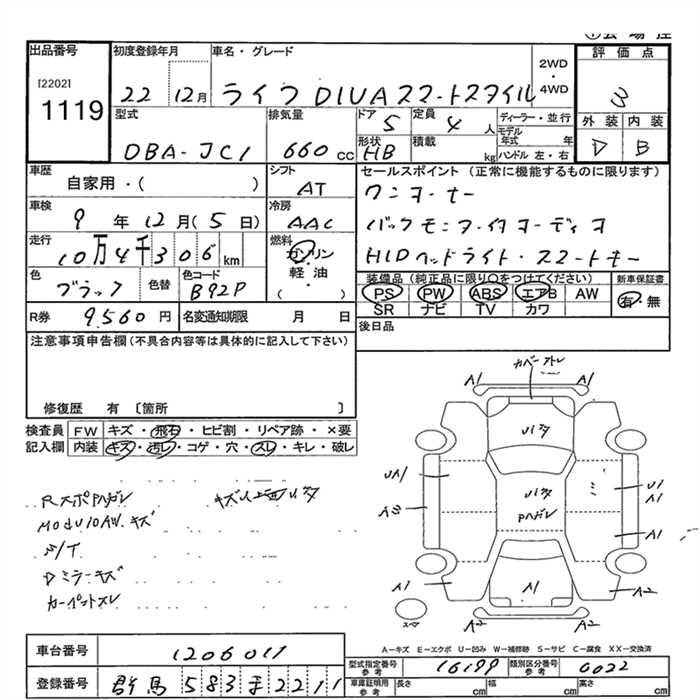 出品番号 初度登録年月 車名・グレード 2WD・4WD 評価点
[2202] 1119 22 12月 ライフ DIVAスマートスタイル 3
型式 排気量 ドア 5 定員 4 人 ディーラー・並行 外装 内装
DBA-JC1 660 cc 形状 HB 積載 kg モデル年式 年 ハンドル 左・右 D B
車歴 自家用・( ) シフト AT セールスポイント (正常に機能するものに限ります)
車検 9 年 12 月 (5 日) 冷房 AAC ワンオーナー
走行 10万4千306 km 燃料 ガソリン 軽油 ・( ) バックモニター付オーディオ
HIDヘッドライト・スマートキー
色 ブラック 色替 色コード B92P 装備品 (純正品に限り○をつけてください) 新車保証書
PS PW ABS エアB AW 有・無
SR ナビ TV カワ
R券 9,560 円 名変通知期限 月 日 後日品
注意事項申告欄(不具合内容等は具体的に記入して下さい)
修復歴 有 〔箇所 〕
検査員 FW キズ・飛石・ヒビ割・リペア跡・×要
記入欄 内装 キズ・汚レ・コゲ・穴・スレ・キレ・破レ
RスポPハガレ
MODULO AW.キズ
S/T
Dミラーキズ
カーペットスレ
カバーストレ
A1 A1
Uイタ
UA1 U1 A1
Uイタ
Pハガレ
A3 A1
A1 A1 A2
A2 A2
スペア
A-キズ E-エクボ U-凹み W-補修跡 S-サビ C-腐食 XX-交換済
車台番号 1206011 型式指定番号 参考 16199 類別区分番号 参考 0022
登録番号 群馬 583 す 2211 車庫証明用 参考 長さ cm 幅 cm 高さ cm